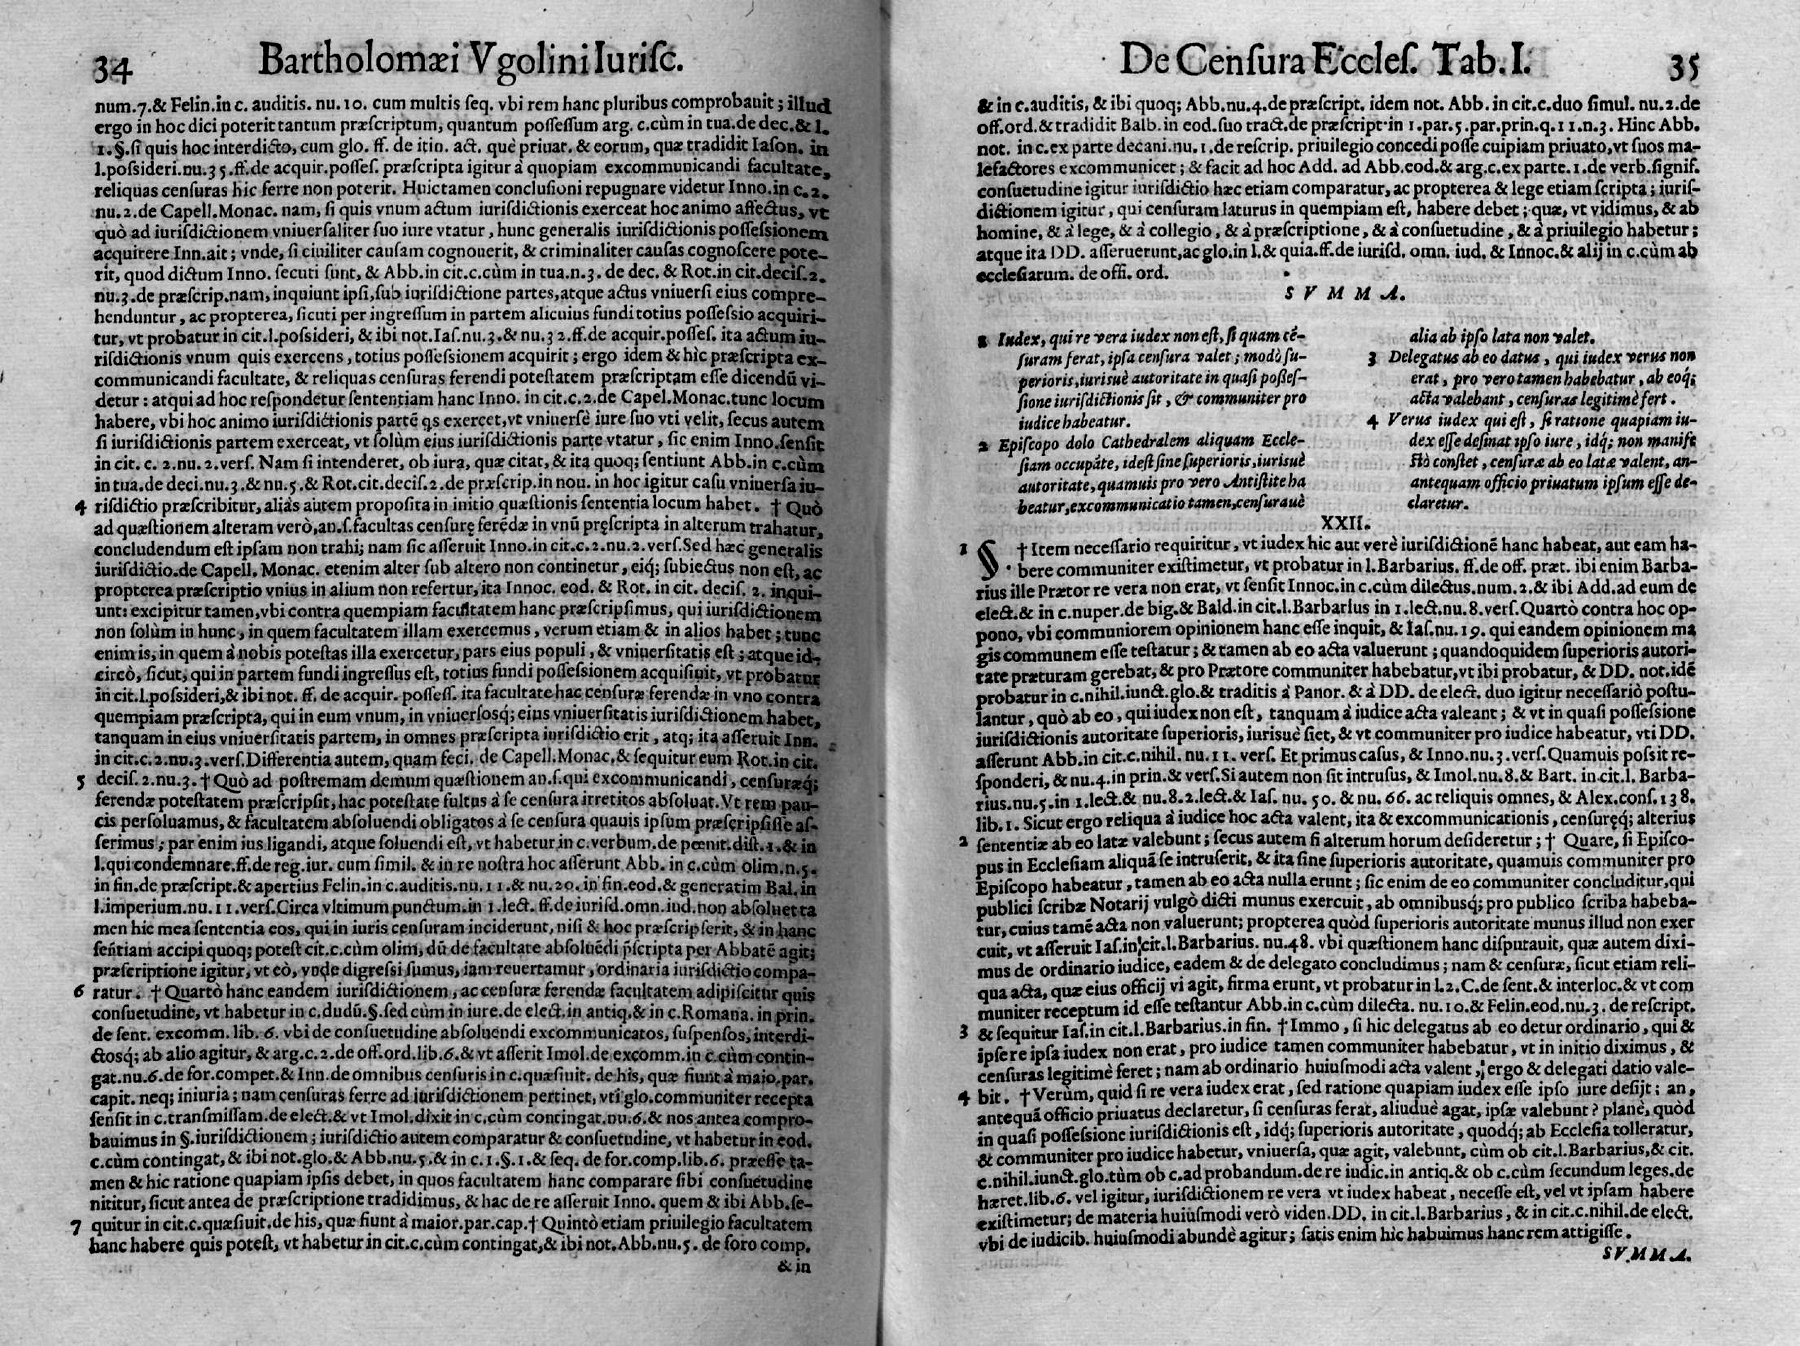 34 Bartholomæi Vgolini Iurisc.
num.7.& Felin.in c. auditis. nu. 10. cum multis seq. vbi rem hanc pluribus comprobauit ; illud
ergo in hoc dici poterit tantum præscriptum, quantum possessum arg. c.cùm in tua.de dec.& l.
1.§.si quis hoc interdicto, cum glo. ff. de itin. act. què priuat. & eorum, quæ tradidit Iason. in
l.possideri.nu.35.ff.de acquir.posses. præscripta igitur à quopiam excommunicandi facultate,
reliquas censuras hic ferre non poterit. Huic tamen conclusioni repugnare videtur Inno.in c.2.
nu.2.de Capell.Monac. nam, si quis vnum actum iurisdictionis exerceat hoc animo affectus, vt
quò ad iurisdictionem vniuersaliter suo iure vtatur, hunc generalis iurisdictionis possessionem
acquirere Inn.ait ; vnde, si ciuiliter causam cognouerit, & criminaliter causas cognoscere pote-
rit, quod dictum Inno. secuti sunt, & Abb.in cit.c.cùm in tua.n.3. de dec. & Rot.in cit.decis.2.
nu.3.de præscrip.nam, inquiunt ipsi,sub iurisdictione partes,atque actus vniuersi eius compre-
henduntur, ac propterea, sicuti per ingressum in partem alicuius fundi totius possessio acquiri-
tur, vt probatur in cit.l.possideri, & ibi not.Ias.nu.3.& nu.32.ff.de acquir.posses. ita actum iu-
risdictionis vnum quis exercens, totius possessionem acquirit ; ergo idem & hìc præscripta ex-
communicandi facultate, & reliquas censuras ferendi potestatem præscriptam esse dicendũ vi-
detur : atqui ad hoc respondetur sententiam hanc Inno. in cit.c.2.de Capel.Monac.tunc locum
habere, vbi hoc animo iurisdictionis partẽ qs exercet,vt vniuersè iure suo vti velit, secus autem
si iurisdictionis partem exerceat, vt solùm eius iurisdictionis parte vtatur, sic enim Inno.sensit
in cit. c. 2.nu.2.vers. Nam si intenderet, ob iura, quæ citat, & ita quoq; sentiunt Abb.in c.cùm
in tua.de deci.nu.3.& nu.5.& Rot.cit.decis.2.de præscrip.in nou. in hoc igitur casu vniuersa iu-
4 risdictio præscribitur, aliàs autem proposita in initio quæstionis sententia locum habet. † Quò
ad quæstionem alteram verò,an.s.facultas censurę ferẽdæ in vnũ pręscripta in alterum trahatur,
concludendum est ipsam non trahi; nam sic asseruit Inno.in cit.c.2.nu.2.vers.Sed hæc generalis
iurisdictio.de Capell. Monac. etenim alter sub altero non continetur, eiq; subiectus non est, ac
propterea præscriptio vnius in alium non refertur, ita Innoc. eod. & Rot. in cit. decis. 2. inqui-
unt: excipitur tamen,vbi contra quempiam facultatem hanc præscripsimus, qui iurisdictionem
non solùm in hunc, in quem facultatem illam exercemus, verum etiam & in alios habet ; tunc
enim is, in quem à nobis potestas illa exercetur, pars eius populi, & vniuersitatis est ; atque id-
circò, sicut, qui in partem fundi ingressus est, totius fundi possessionem acquisiuit, vt probatur
in cit.l.possideri,& ibi not. ff. de acquir. possess. ita facultate hac censuræ ferendæ in vno contra
quempiam præscripta, qui in eum vnum, in vniuersosq; eius vniuersitatis iurisdictionem habet,
tanquam in eius vniuersitatis partem, in omnes præscripta iurisdictio erit, atq; ita asseruit Inn.
in cit.c.2.nu.3.vers.Differentia autem, quam feci. de Capell.Monac.& sequitur eum Rot.in cit.
5 decis.2.nu.3. † Quò ad postremam demum quæstionem an.s.qui excommunicandi, censuræq;
ferendæ potestatem præscripsit, hac potestate fultus à se censura irretitos absoluat. Vt rem pau-
cis persoluamus, & facultatem absoluendi obligatos à se censura quauis ipsum præscripsisse as-
serimus ; par enim ius ligandi, atque soluendi est, vt habetur in c.verbum.de pœnit.dist.1.& in
l.qui condemnare.ff.de reg.iur. cum simil. & in re nostra hoc asserunt Abb. in c.cùm olim.n.5.
in fin.de præscript.& apertius Felin.in c.auditis.nu.11.& nu.20.in fin.eod.& generatim Bal.in
l.imperium.nu.11.vers.Circa vltimum punctum.in 1.lect. ff.de iurisd.omn.iud.non absoluet ta
men hic mea sententia eos, qui in iuris censuram inciderunt, nisi & hoc præscripserit, & in hanc
sentiam accipi quoq; potest cit.c.cùm olim, dũ de facultate absoluẽdi p̃scripta per Abbatẽ agit;
præscriptione igitur, vt eò, vnde digressi sumus, iam reuertamur, ordinaria iurisdictio compa-
6 ratur. † Quartò hanc eandem iurisdictionem, ac censuræ ferendæ facultatem adipiscitur quis
consuetudine, vt habetur in c.dudũ.§.sed cùm in iure.de elect.in antiq.& in c.Romana. in prin.
de sent. excomm. lib. 6. vbi de consuetudine absoluendi excommunicatos, suspensos, interdi-
ctosq; ab alio agitur, & arg.c.2.de off.ord.lib.6.& vt asserit Imol.de excomm.in c.cùm contin-
gat.nu.6.de for.compet.& Inn.de omnibus censuris in c.quæsiuit. de his, quæ fiunt à maio.par.
capit. neq; iniuria ; nam censuras ferre ad iurisdictionem pertinet, vti glo.communiter recepta
sensit in c.transmissam.de elect.& vt Imol.dixit in c.cùm contingat.nu.6.& nos antea compro-
bauimus in §.iurisdictionem ; iurisdictio autem comparatur & consuetudine, vt habetur in eod.
c.cùm contingat, & ibi not.glo.& Abb.nu.5.& in c.1.§.1.& seq. de for.comp.lib.6. præesse ta-
men & hic ratione quapiam ipsis debet, in quos facultatem hanc comparare sibi consuetudine
nititur, sicut antea de præscriptione tradidimus, & hac de re asseruit Inno. quem & ibi Abb.se-
7 quitur in cit.c.quæsiuit.de his, quæ fiunt à maior.par.cap.† Quintò etiam priuilegio facultatem
hanc habere quis potest, vt habetur in cit.c.cùm contingat,& ibi not. Abb.nu.5. de foro comp.
& in
De Censura Eccles. Tab. I. 35
& in c.auditis, & ibi quoq; Abb.nu.4.de præscript. idem not. Abb. in cit.c.duo simul. nu.2.de
off.ord.& tradidit Balb.in eod.suo tract.de præscript.in 1.par.5.par.prin.q.11.n.3. Hinc Abb.
not. in c.ex parte decani.nu.1.de rescrip. priuilegio concedi posse cuipiam priuato,vt suos ma-
lefactores excommunicet ; & facit ad hoc Add. ad Abb.eod.& arg.c.ex parte.1.de verb.signif.
consuetudine igitur iurisdictio hæc etiam comparatur, ac propterea & lege etiam scripta ; iuris-
dictionem igitur, qui censuram laturus in quempiam est, habere debet ; quæ, vt vidimus, & ab
homine, & à lege, & à collegio, & à præscriptione, & à consuetudine, & à priuilegio habetur ;
atque ita DD. asseruerunt,ac glo.in l.& quia.ff.de iurisd. omn. iud. & Innoc.& alij in c.cùm ab
ecclesiarum. de offi. ord.
SVMMA.
1 Iudex, qui re vera iudex non est, si quam cẽ-
suram ferat, ipsa censura valet ; modò su-
perioris,iurisuè autoritate in quasi posses-
sione iurisdictionis sit, & communiter pro
iudice habeatur.
2 Episcopo dolo Cathedralem aliquam Eccle-
siam occupãte, idest sine superioris,iurisuè
autoritate, quamuis pro vero Antistite ha
beatur,excommunicatio tamen,censurauè
alia ab ipso lata non valet.
3 Delegatus ab eo datus, qui iudex verus non
erat, pro vero tamen habebatur, ab eoq;
acta valebant, censuras legitimè fert.
4 Verus iudex qui est, si ratione quapiam iu-
dex esse desinat ipso iure, idq; non manife
stò constet, censuræ ab eo latæ valent, an-
antequam officio priuatum ipsum esse de-
claretur.
XXII.
1 §. † Item necessario requiritur, vt iudex hic aut verè iurisdictionẽ hanc habeat, aut eam ha-
bere communiter existimetur, vt probatur in l.Barbarius. ff.de off. præt. ibi enim Barba-
rius ille Prætor re vera non erat, vt sensit Innoc.in c.cùm dilectus.num.2.& ibi Add.ad eum de
elect.& in c.nuper.de big.& Bald.in cit.l.Barbarius in 1.lect.nu.8.vers.Quartò contra hoc op-
pono, vbi communiorem opinionem hanc esse inquit, & Ias.nu.19. qui eandem opinionem ma
gis communem esse testatur ; & tamen ab eo acta valuerunt ; quandoquidem superioris autori-
tate præturam gerebat, & pro Prætore communiter habebatur,vt ibi probatur, & DD. not.idẽ
probatur in c.nihil.iunct.glo.& traditis à Panor. & à DD. de elect. duo igitur necessariò postu-
lantur, quò ab eo, qui iudex non est, tanquam à iudice acta valeant ; & vt in quasi possessione
iurisdictionis autoritate superioris, iurisuè siet, & vt communiter pro iudice habeatur, vti DD.
asserunt Abb.in cit.c.nihil. nu.11. vers. Et primus casus, & Inno.nu.3.vers.Quamuis possit re-
sponderi, & nu.4.in prin.& vers.Si autem non sit intrusus, & Imol.nu.8.& Bart. in cit.l. Barba-
rius.nu.5.in 1.lect.& nu.8.2.lect.& Ias. nu. 50. & nu. 66. ac reliquis omnes, & Alex.cons.138.
lib.1. Sicut ergo reliqua à iudice hoc acta valent, ita & excommunicationis, censuręq; alterius
2 sententiæ ab eo latæ valebunt ; secus autem si alterum horum desideretur ; † Quare, si Episco-
pus in Ecclesiam aliquã se intruserit, & ita sine superioris autoritate, quamuis communiter pro
Episcopo habeatur, tamen ab eo acta nulla erunt ; sic enim de eo communiter concluditur,qui
publici scribæ Notarij vulgò dicti munus exercuit, ab omnibusq; pro publico scriba habeba-
tur, cuius tamẽ acta non valuerunt; propterea quòd superioris autoritate munus illud non exer
cuit, vt asseruit Ias.in cit.l.Barbarius. nu.48. vbi quæstionem hanc disputauit, quæ autem dixi-
mus de ordinario iudice, eadem & de delegato concludimus ; nam & censuræ, sicut etiam reli-
qua acta, quæ eius officij vi agit, firma erunt, vt probatur in l.2.C.de sent.& interloc.& vt com
muniter receptum id esse testantur Abb.in c.cùm dilecta. nu.10.& Felin.eod.nu.3. de rescript.
3 & sequitur Ias.in cit.l.Barbarius.in fin. † Immo, si hic delegatus ab eo detur ordinario, qui &
ipse re ipsa iudex non erat, pro iudice tamen communiter habebatur, vt in initio diximus, &
censuras legitimè feret ; nam ab ordinario huiusmodi acta valent ; ergo & delegati datio vale-
4 bit. † Verùm, quid si re vera iudex erat, sed ratione quapiam iudex esse ipso iure desijt ; an,
antequã officio priuatus declaretur, si censuras ferat, aliudùe agat, ipsæ valebunt ? planè, quòd
in quasi possessione iurisdictionis est, idq; superioris autoritate, quodq; ab Ecclesia tolleratur,
& communiter pro iudice habetur, vniuersa, quæ agit, valebunt, cùm ob cit.l.Barbarius,& cit.
c.nihil.iunct.glo.tùm ob c.ad probandum.de re iudic.in antiq.& ob c.cùm secundum leges.de
hæret.lib.6. vel igitur, iurisdictionem re vera vt iudex habeat, necesse est, vel vt ipsam habere
existimetur; de materia huiusmodi verò viden.DD. in cit.l.Barbarius, & in cit.c.nihil.de elect.
vbi de iudicib. huiusmodi abundè agitur ; satis enim hic habuimus hanc rem attigisse.
SVMMA.